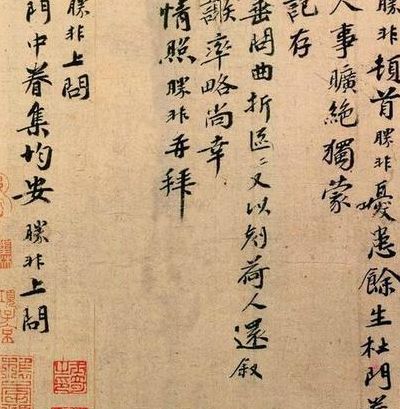 勝非頓首勝非憂患餘生杜門
人事曠絶獨蒙
記存
垂問曲折區〻又以刻荷人還叙
謝率略尚幸
情照勝非再拜
勝非上問
門中眷集均安勝非上問